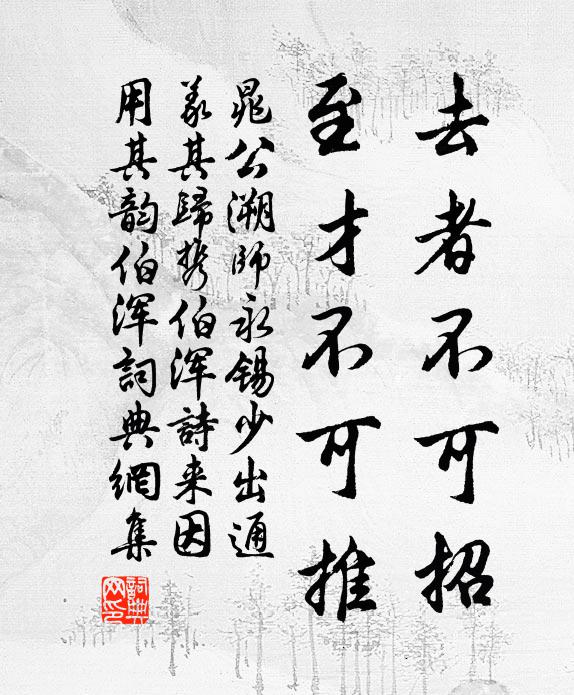 去者不可招
至才不可推
晁公溯师永锡少出通
义其歸携伯浑詩来因
用其韵伯浑詞典網集
詞典網印